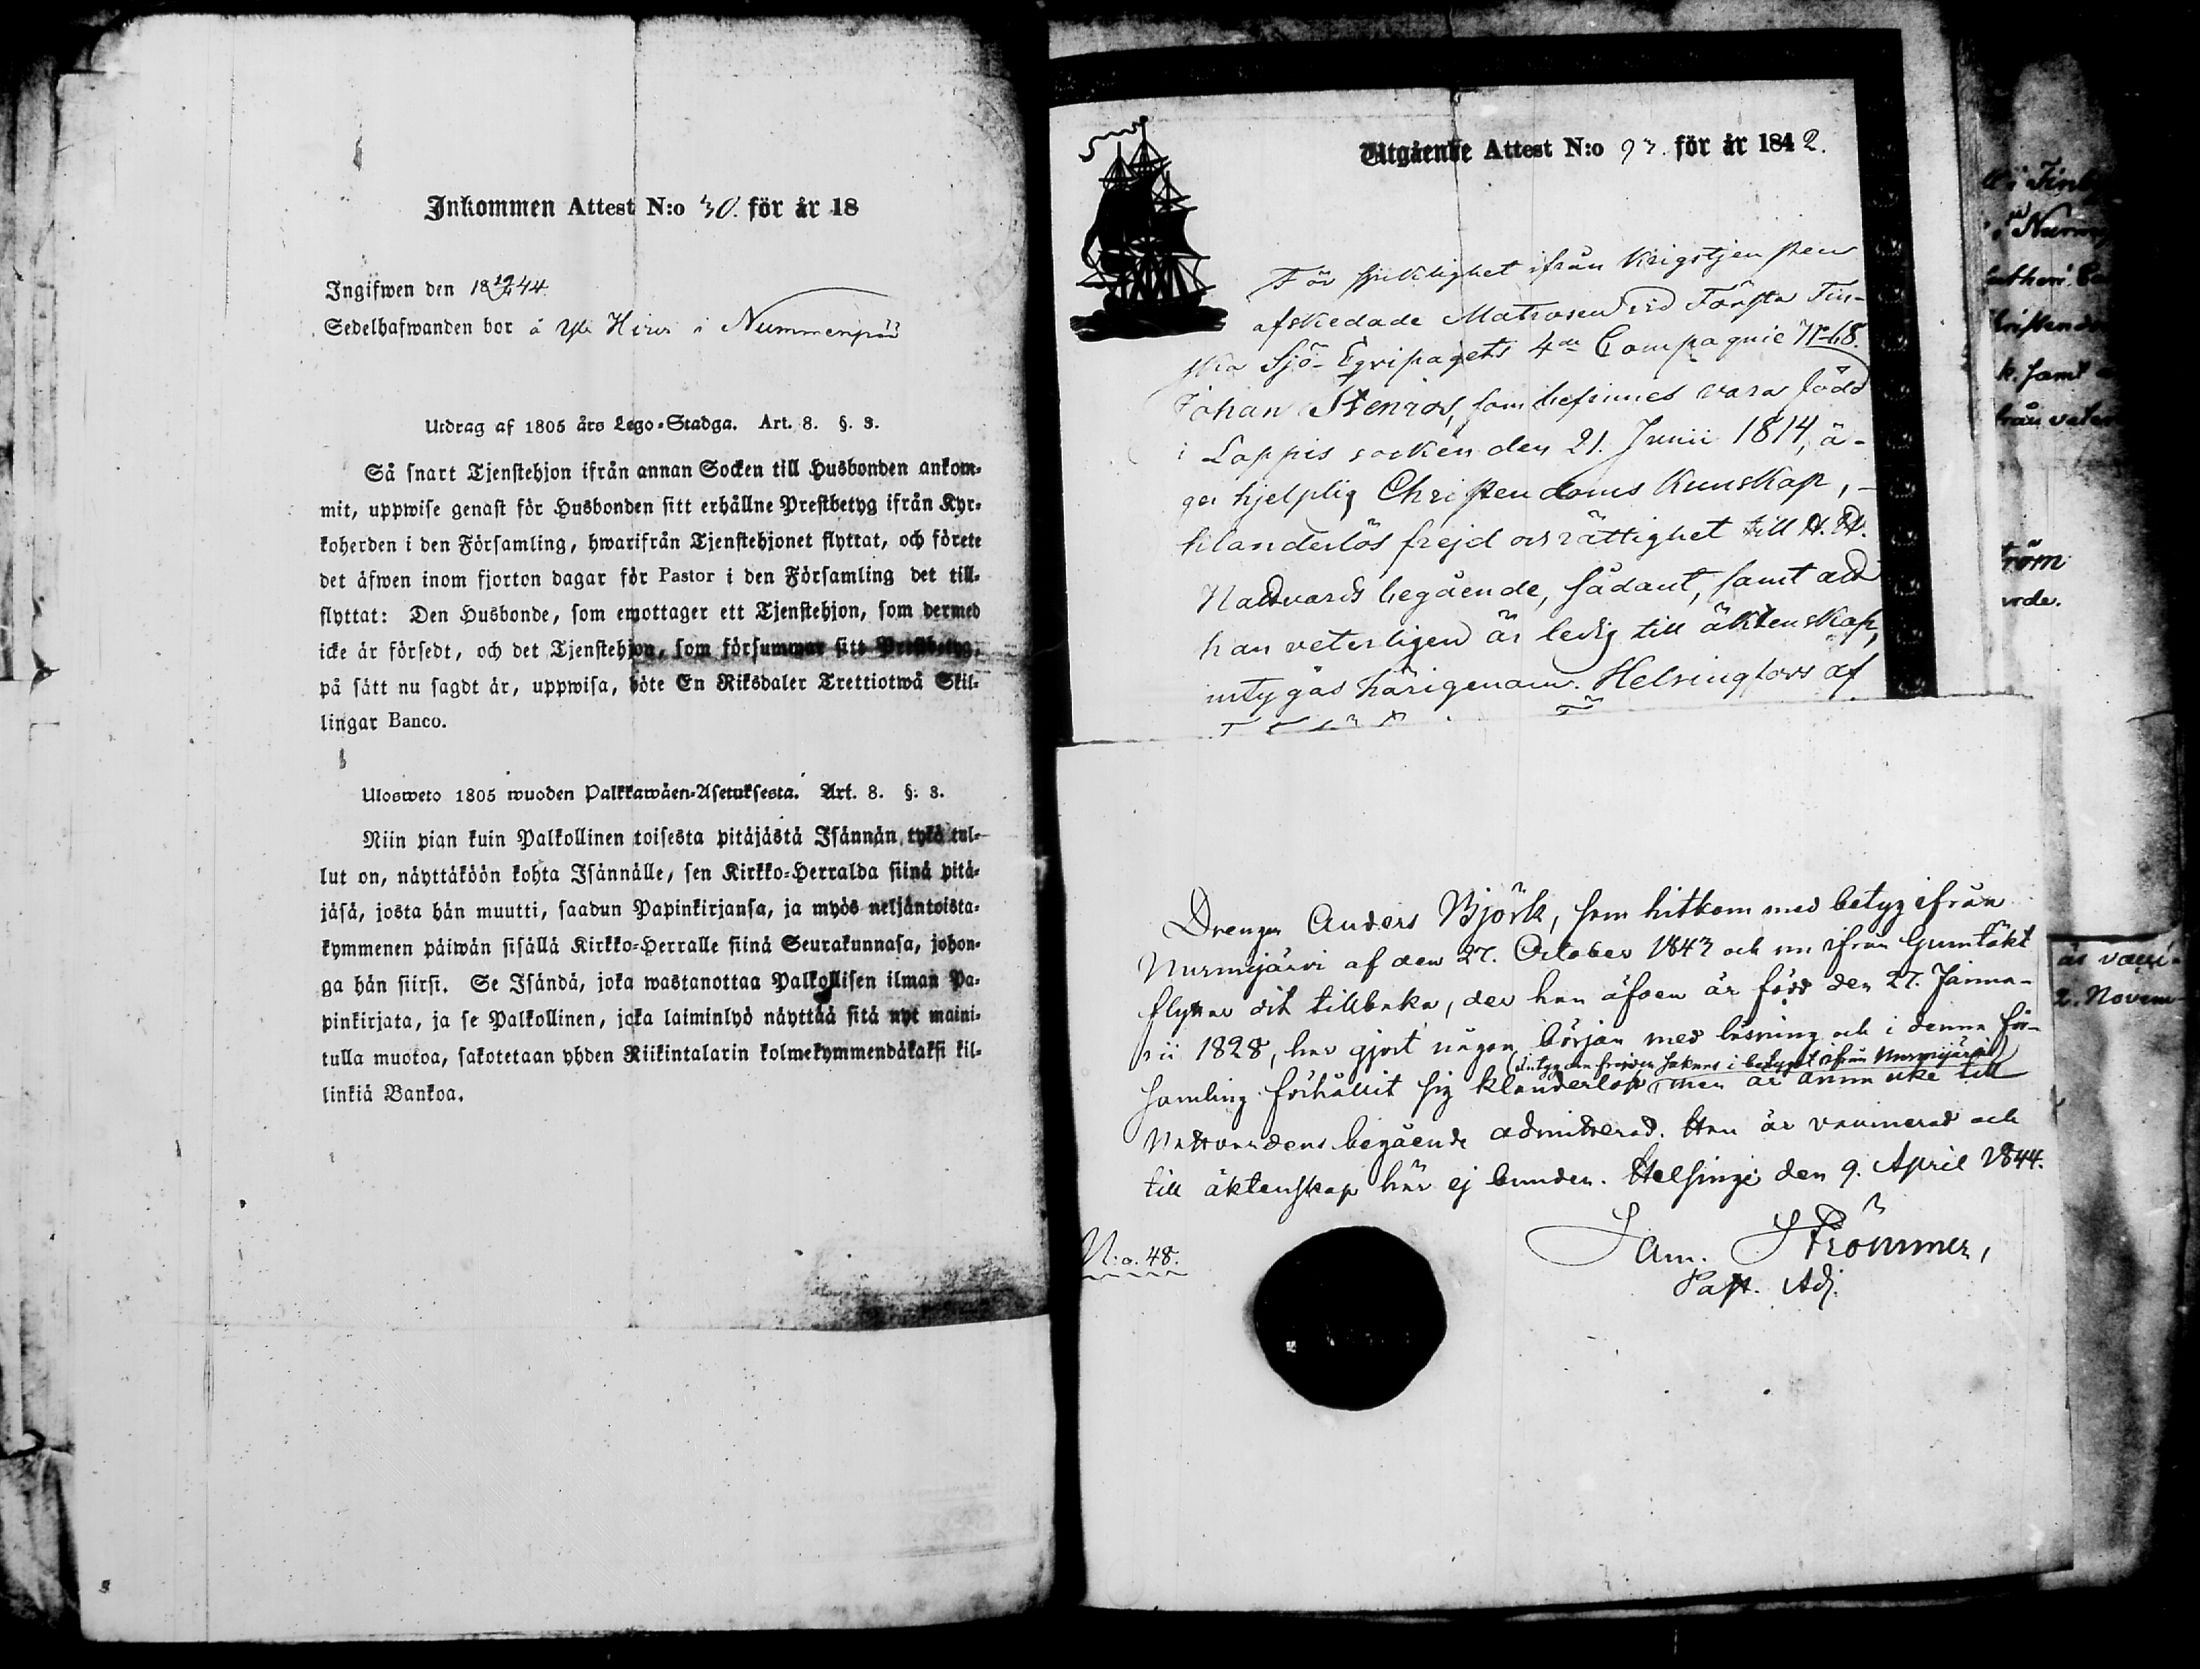 Inkommen Attest N:o 30. för år 18
Ingifwen den 18 19/4 44
Sedelhafwanden bor å Yli Hirvi i Nummenpää
Utdrag af 1805 års Lego-Stadga. Art. 8. §. 3.
Så snart Tjenstehjon ifrån annan Socken till Husbonden ankom-
mit, uppwise genast för Husbonden sitt erhållne Prestbetyg ifrån Kyr-
koherden i den Församling, hwarifrån Tjenstehjonet flyttat, och förete
det äfwen inom fjorton dagar för Pastor i den Församling det till-
flyttat: Den Husbonde, som emottager ett Tjenstehjon, som dermed
icke är försedt, och det Tjenstehjon, som försummar sitt Prestbetyg,
på sätt nu sagdt är, uppwisa, böte En Riksdaler Trettiotwå Skil-
lingar Banco.
Ulosweto 1805 wuoden Palkkawäen-Asetuksesta. Art. 8. §. 3.
Niin pian kuin Palkollinen toisesta pitäjästä Isännän tykö tul-
lut on, näyttäköön kohta Isännälle, sen Kirkko-Herralda siinä pitä-
jäsä, josta hän muutti, saadun Papinkirjansa, ja myös neljäntoista-
kymmenen päiwän sisällä Kirkko-Herralle siinä Seurakunnasa, johon-
ga hän siirsi. Se Isändä, joka wastanottaa Palkollisen ilman Pa-
pinkirjata, ja se Palkollinen, joka laiminlyö näyttää sitä nyt maini-
tulla muotoa, sakotetaan yhden Riikintalarin kolmekymmendäkaksi kil-
linkiä Bankoa.
Utgående Attest N:o 93. för år 1842.
För sjuklighet ifrån Krigstjensten
afskedade Matrosen vid Första Fin-
ska Sjö-Eqvipagets 4de Compagnie N:68.
Johan Stenros, som befinnes vara född
i Loppis socken den 21. Junii 1814, ä-
ger hjelplig Christendoms Kunskap, -
klanderlös frejd och rättighet till H. H.
Nattvards begående, sådant, samt att
han veterligen är ledig till äktenskap,
intygas härigenom. Helsingfors af
Drengen Anders Björk, som hitkom med betyg ifrån
Nurmijärvi af den 27. October 1843 och nu ifrån Gumtäkt
flyttar dit tillbaka, der han äfven är född den 27. Janua-
rii 1828, har gjort någon början med läsning och i denna för-
(intyg om frejden saknas i betyget ifrån Nurmijärvi)
samling förhållit sig klanderlöst men är ännu icke till
Nattvardens begående admitterad. Han är vaccinerad och
till äktenskap här ej bunden. Helsinge den 9. April 1844.
Sam. Strömmer,
Past. Adj.
N:o. 48.
i Finl
Nurm
k. samt
från veter
röm
rde.
är vacci-
2. Novem-